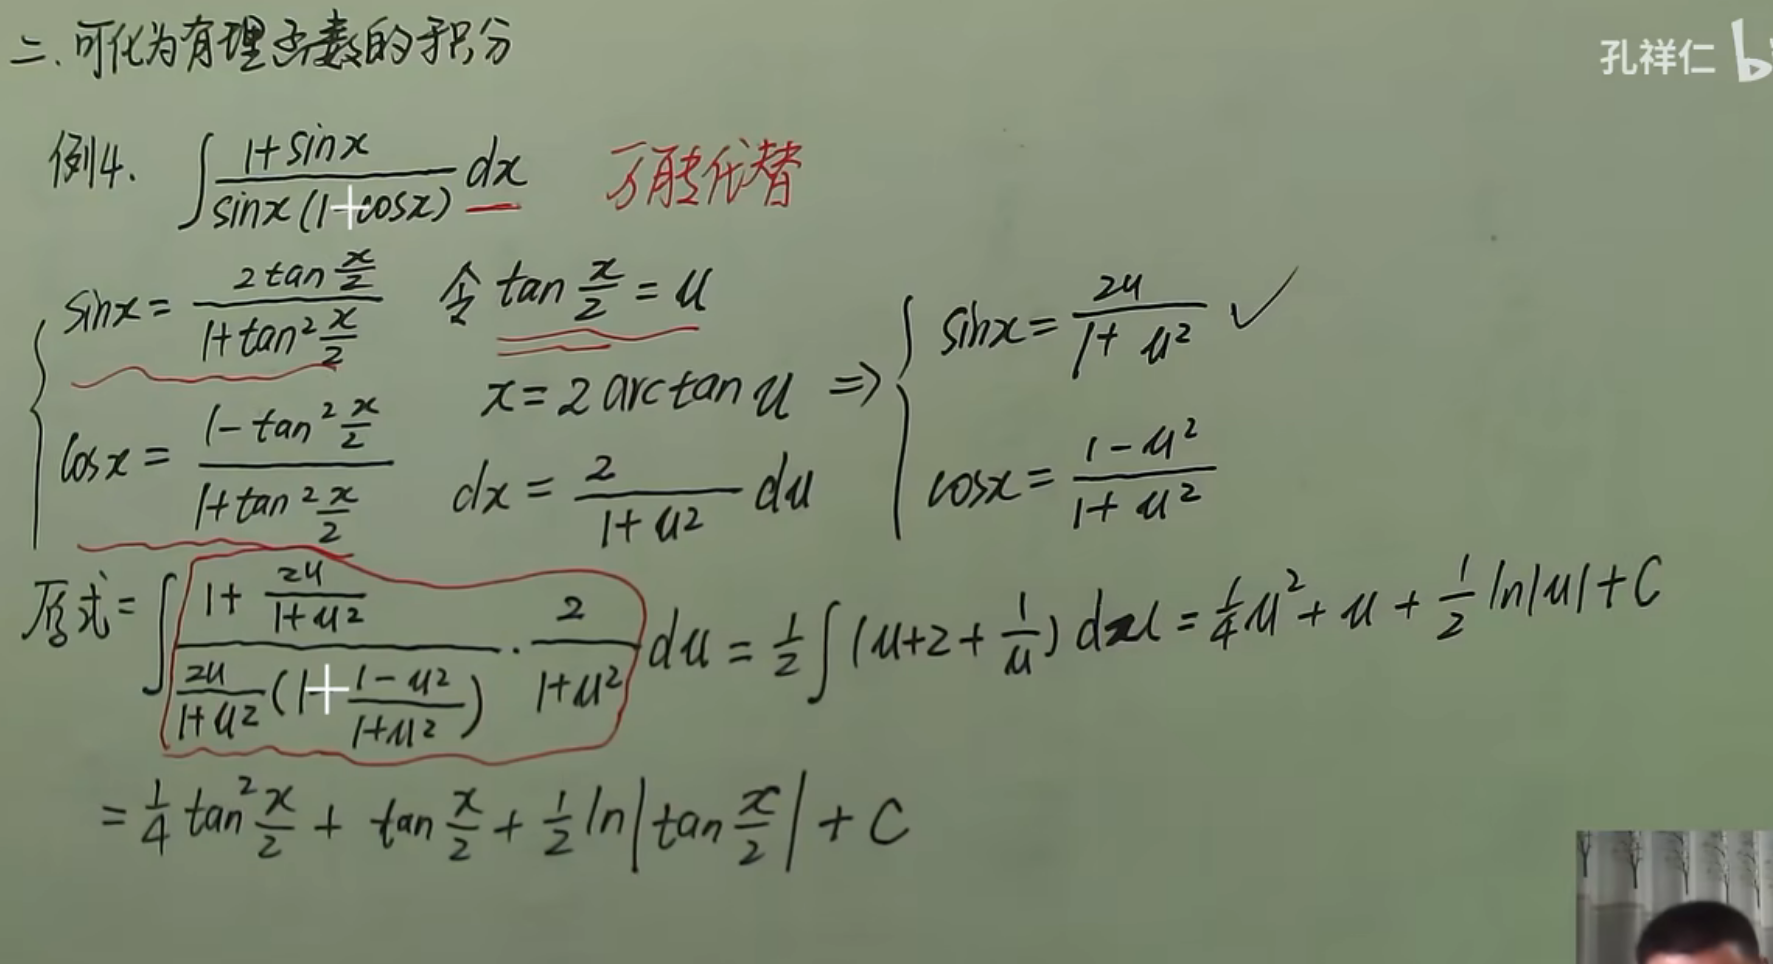 二. 可化为有理函数的积分
孔祥仁 b
例4. ∫ (1+sinx)/(sinx(1+cosx)) dx 万能代替
{ sinx = (2tan x/2)/(1+tan² x/2) 令 tan x/2 = u ⇒ { sinx = 2u/(1+u²) ✓
x = 2arctan u
cosx = (1-tan² x/2)/(1+tan² x/2) dx = 2/(1+u²) du cosx = (1-u²)/(1+u²)
原式 = ∫ (1+ 2u/(1+u²))/(2u/(1+u²) (1+ (1-u²)/(1+u²))) · 2/(1+u²) du = 1/2 ∫ (u+2+ 1/u) du = 1/4 u² + u + 1/2 ln|u| + C
= 1/4 tan² x/2 + tan x/2 + 1/2 ln|tan x/2| + C